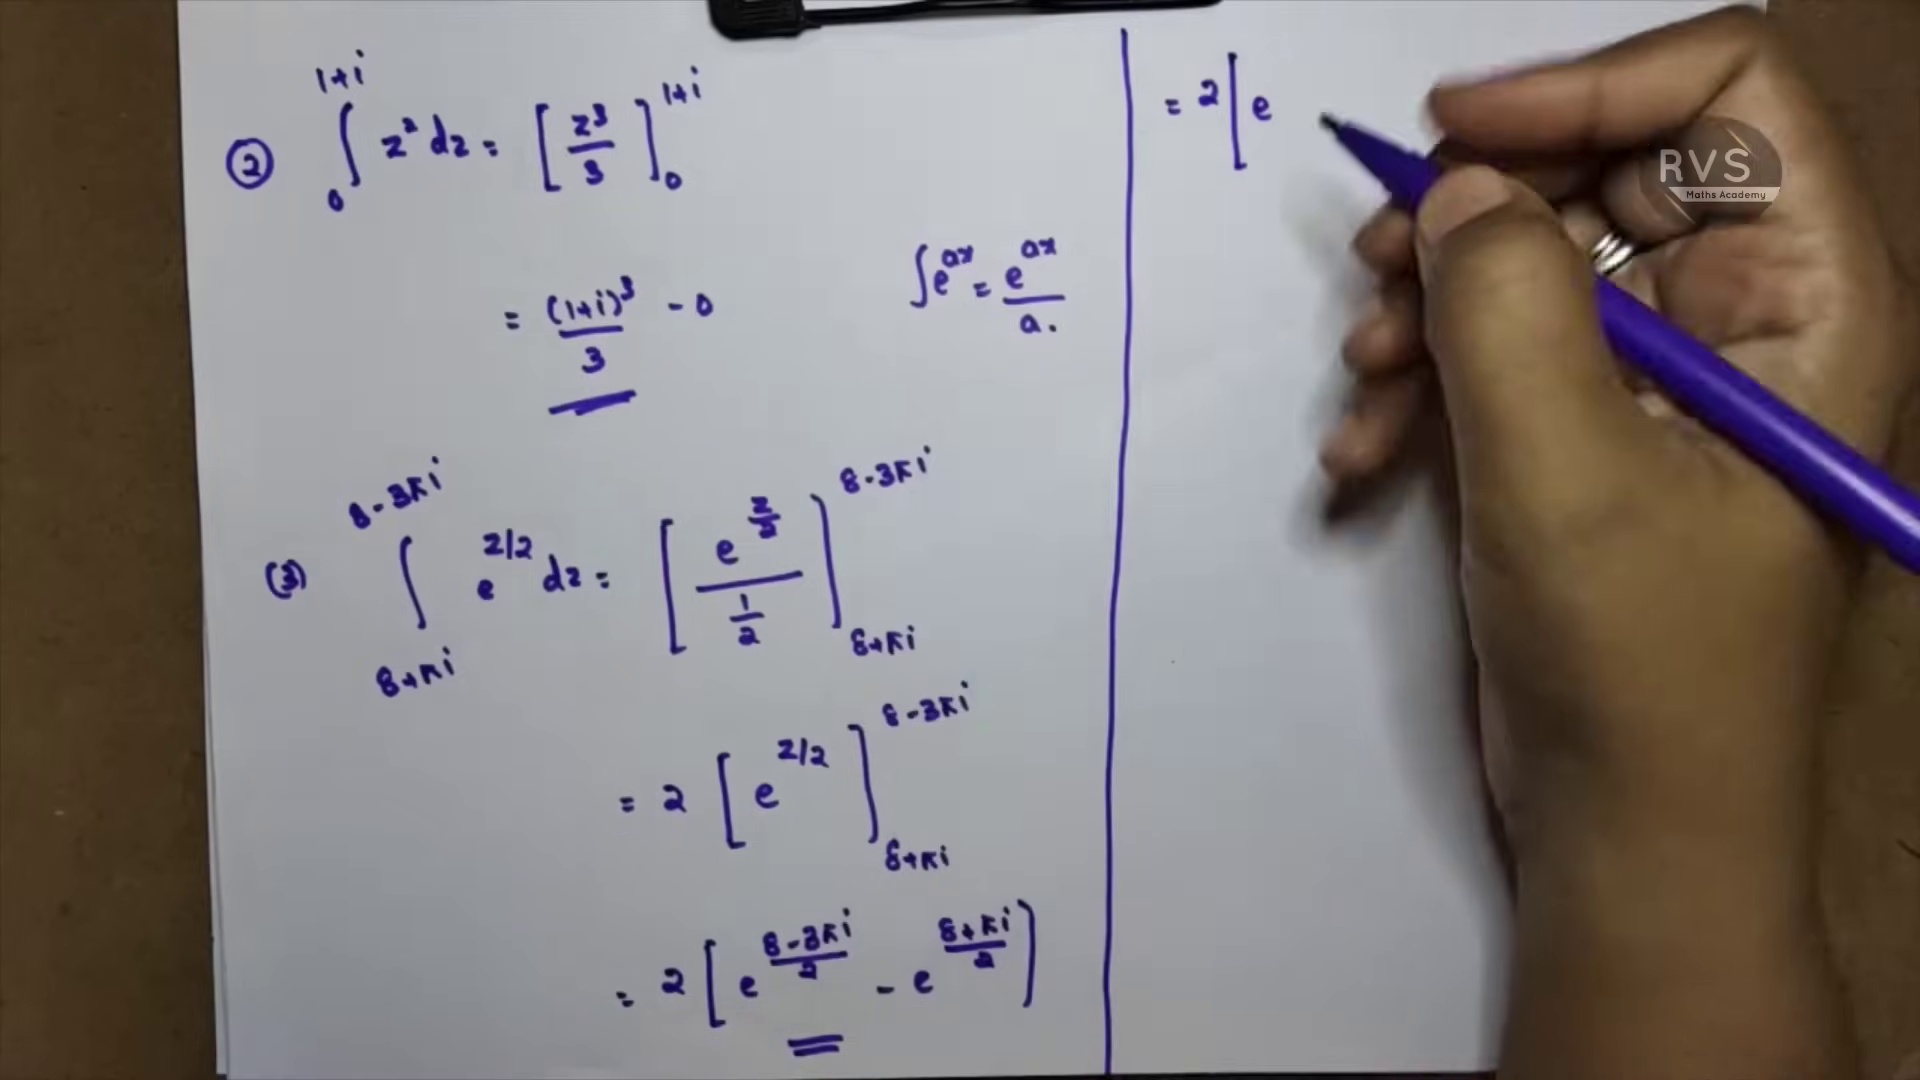 ② ∫₀^(1+i) z² dz = [z³/3]₀^(1+i)
= (1+i)³/3 - 0
∫e^(ax) = e^(ax)/a.
(3) ∫_(8+πi)^(8-3πi) e^(z/2) dz = [e^(z/2)/(1/2)]_(8+πi)^(8-3πi)
= 2 [e^(z/2)]_(8+πi)^(8-3πi)
= 2 [e^((8-3πi)/2) - e^((8+πi)/2)]
= 2 [e
RVS
Maths Academy